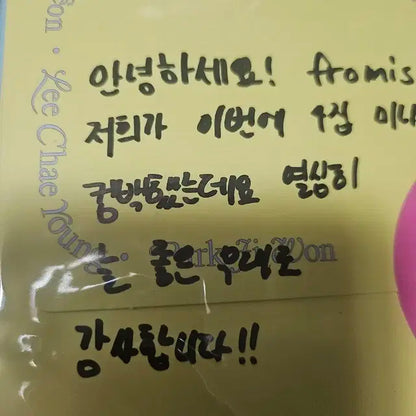 안녕하세요! fromis
저희가 이번에 4집 미니
열심히
좋은 무대로
감사합니다!!
Lee Chae Young
Park Ji Won